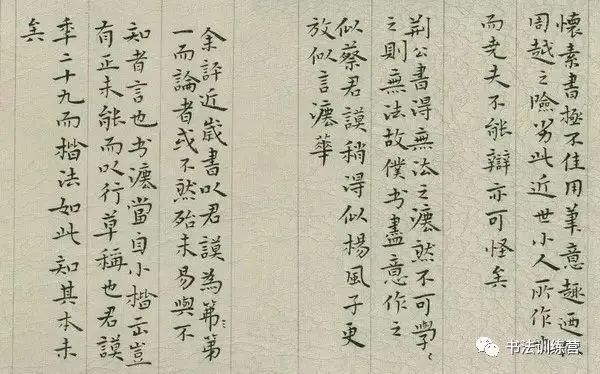 懷素書極不佳用筆意趣迺
周越之險劣此近世小人所作也
而堯夫不能辯亦可怪矣
荆公書得無法之灋然不可學〻
之則無法故僕书盡意作之
似蔡君謨稍得似楊風子更
放似言灋華
余評近歲書以君謨為第第
一而論者或不然殆未易與不
知者言也书灋當自小楷出豈
有正未能而以行草稱也君謨
秊二十九而楷法如此知其本末
矣
书法训练营